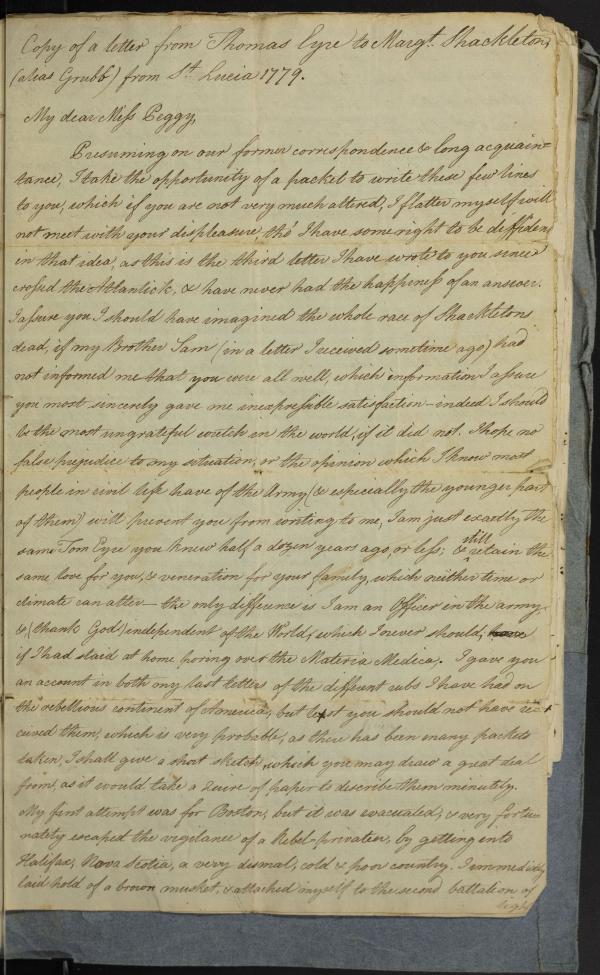 Copy of a letter from Thomas Eyre to Margt. Shackleton,
(alias Grubb) from St. Lucia 1779.
My dear Miss Peggy,
Presuming on our former correspondence & long acquain=
tance, I take the opportunity of a packet to write these few lines
to you, which if you are not very much altered, I flatter myself will
not meet with your displeasure, tho' I have some right to be diffiden
in that idea, as this is the third letter I have wrote to you since
crossed the Atlantick, & have never had the happiness of an answer.
I assure you I should have imagined the whole race of Shackletons
dead, if my Brother Sam (in a letter I received sometime ago) had
not informed me that you were all well, which information I assure
you most sincerely gave me inexpressible satisfaction – indeed I should
be the most ungrateful wretch in the world, if it did not. I hope no
false prejudice to my situation, or the opinion which I know most
people in civil life have of the Army (& especially the younger part
of them) will prevent you from writing to me, I am just exactly the
same Tom Eyre you knew half a dozen years ago, or less; & still retain the
same love for you, & veneration for your family, which neither time or
climate can alter – the only difference is I am an Officer in the army,
& (thank God) independent of the World, which I never should,
if I had staid at home poring over the Materia Medica. I gave you
an account in both my last letters of the different rubs I have had on
the rebellious continent of America, but lest you should not have re=
ceived them, which is very probable, as there has been many packets
taken, I shall give a short sketch, which you may draw a great deal
from, as it would take a Quire of paper to describe them minutely.
My first attempt was for Boston, but it was evacuated, & very fortu
nately escaped the vigilance of a Rebel privateer, by getting into
Halifax, Nova Scotia, a very dismal, cold & poor country. I immediately
laid hold of a brown musket, & attached myself to the second battalion of
light